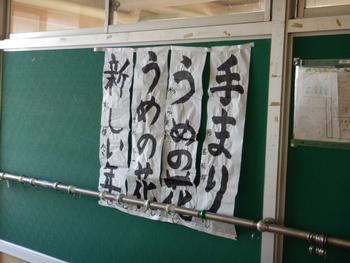 手まり
うめの花
うめの花
新しい年